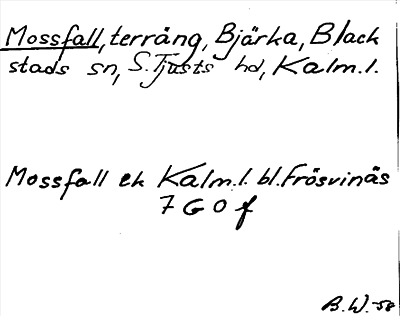 Mossfall, terräng, Bjärka, Black
stads sn, S. Tjusts hd, Kalm. l.
Mossfall ek Kalm. l. bl. Frösvinäs
7 G 0 f
B. W. -58